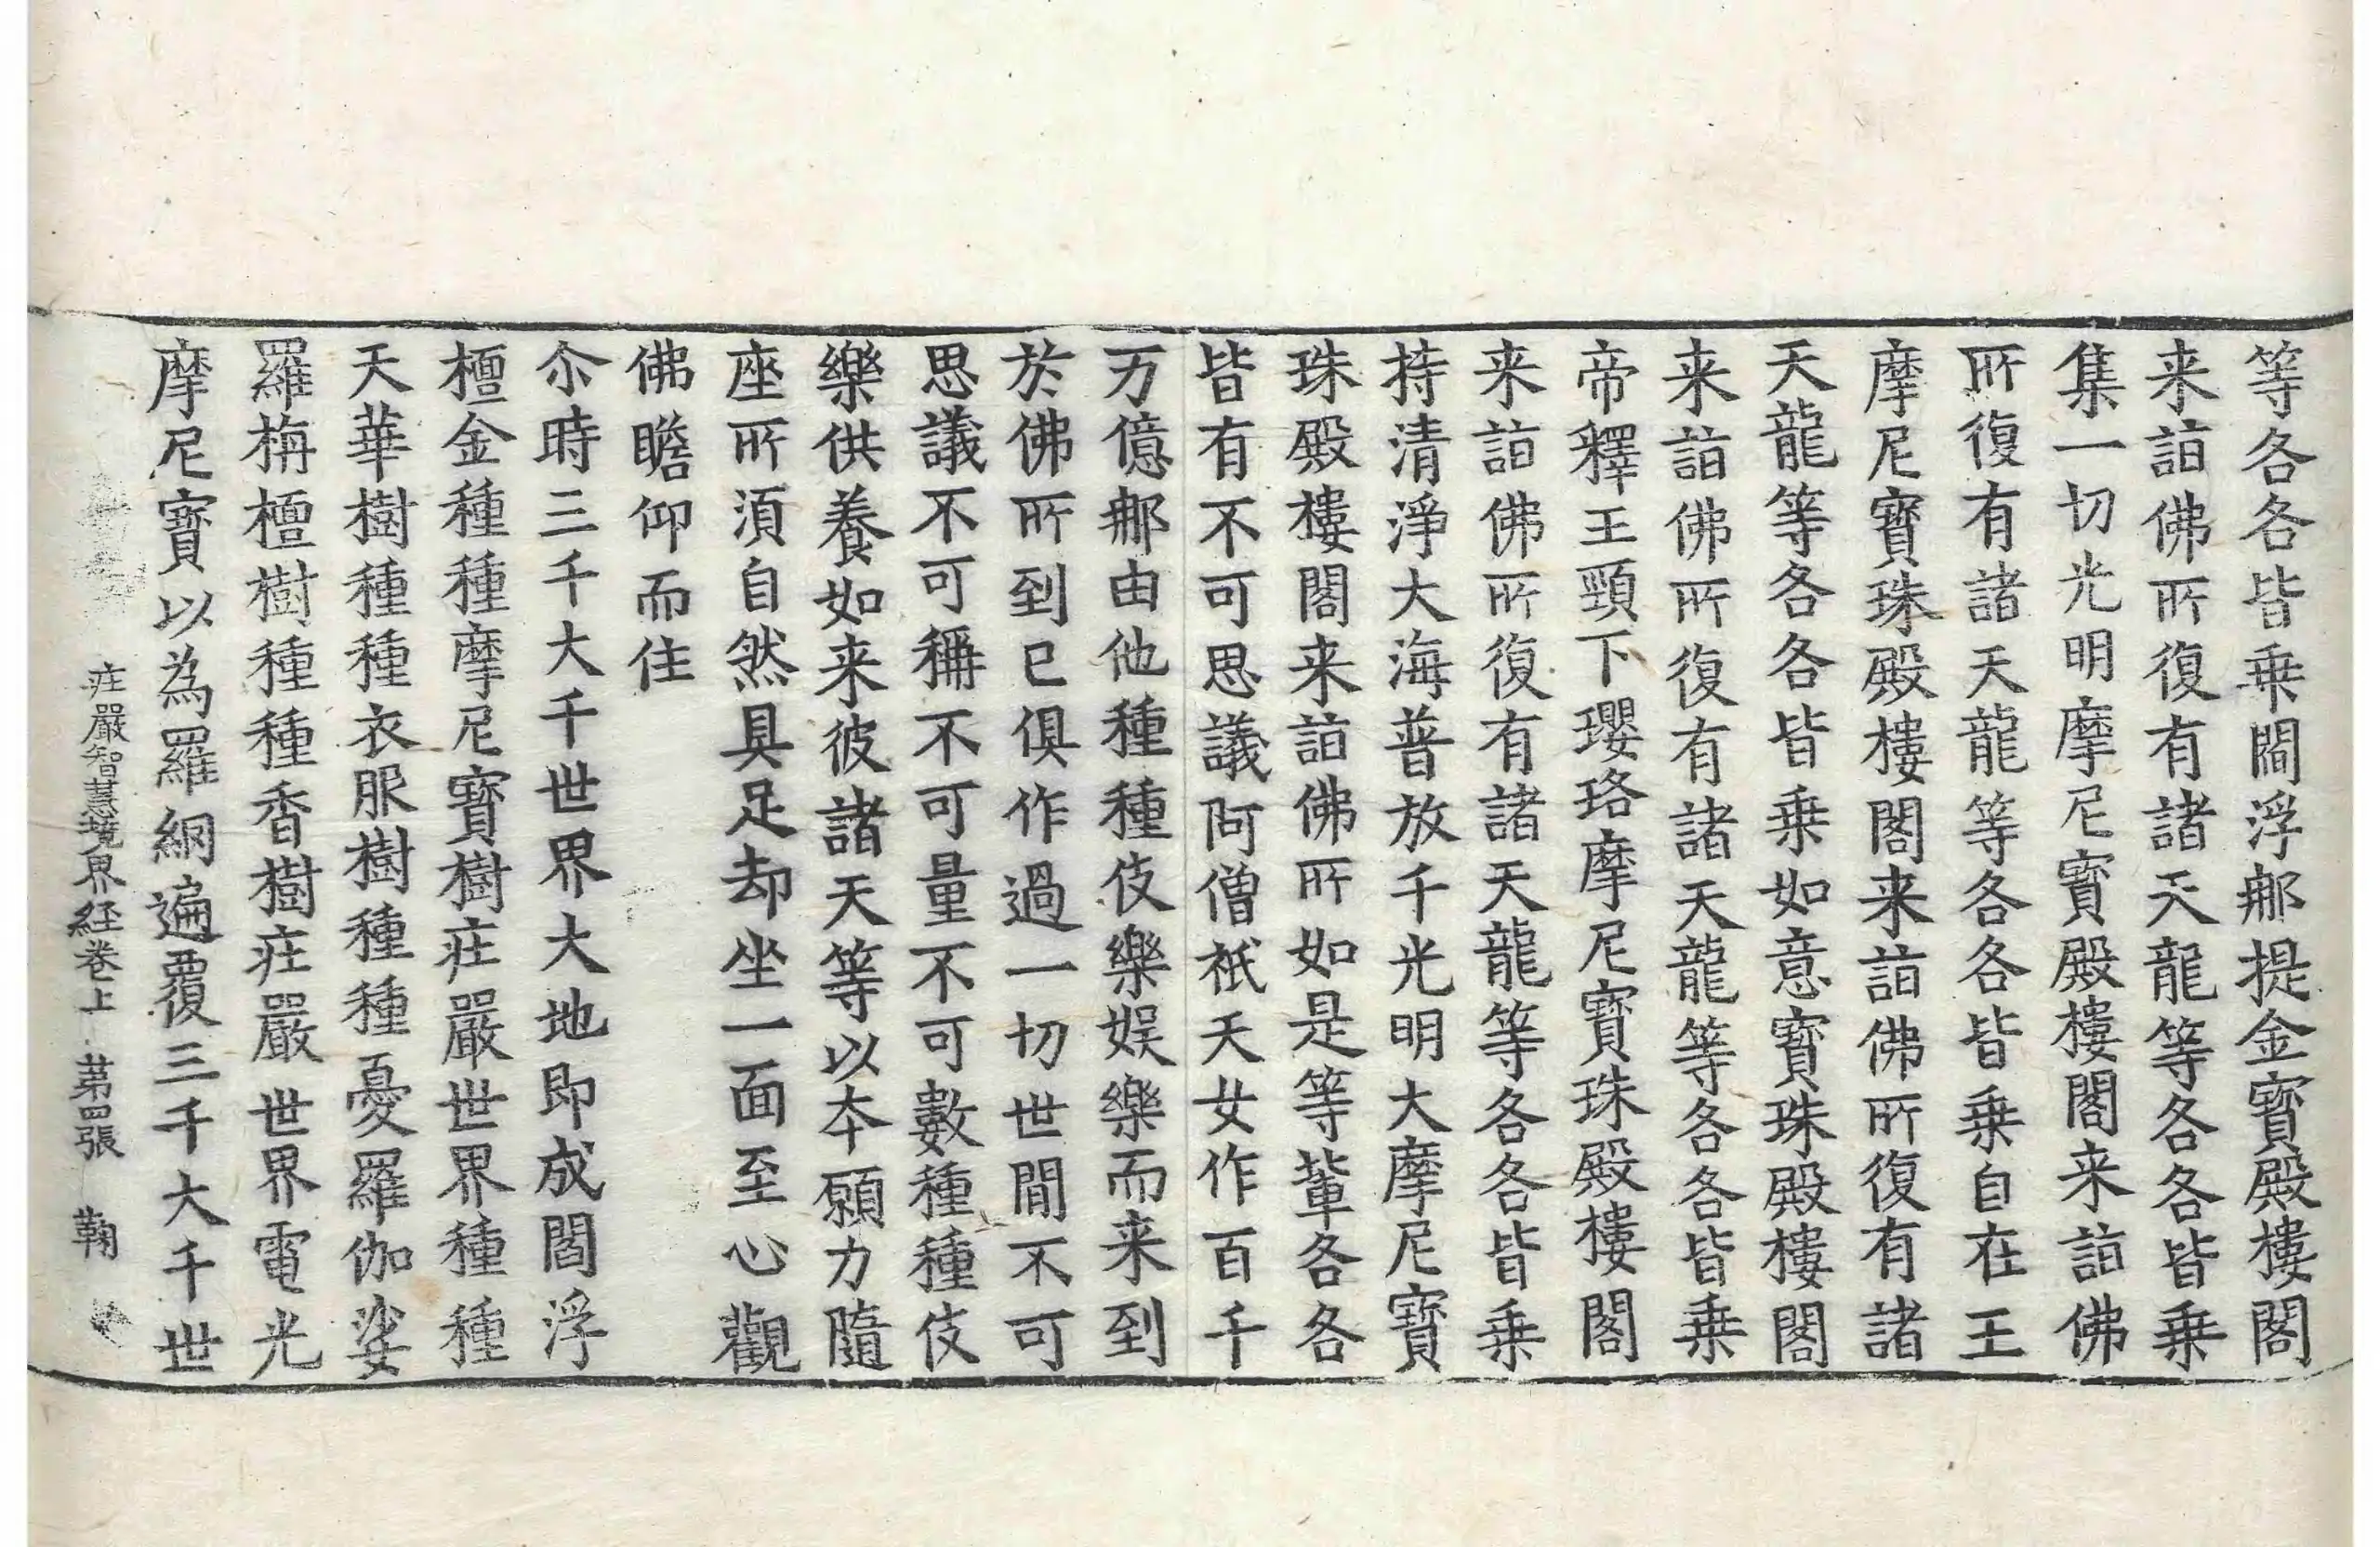 等各各皆乗閻浮那提金寳殿樓閣
来詣佛所復有諸天龍等各各皆乗
集一切光明摩尼寳殿樓閣来詣佛
所復有諸天龍等各各皆乗自在王
摩尼寳珠殿樓閣来詣佛所復有諸
天龍等各各皆乗如意寳珠殿樓閣
来詣佛所復有諸天龍等各各皆乗
帝釋王頸下瓔珞摩尼寳珠殿樓閣
来詣佛所復有諸天龍等各各皆乗
持清淨大海普放千光明大摩尼寳
珠殿樓閣来詣佛所如是等軰各各
皆有不可思議阿僧祇天女作百千
万億那由他種種伎樂娱樂而来到
於佛所到已俱作過一切世間不可
思議不可稱不可量不可數種種伎
樂供養如来彼諸天等以夲願力隨
座所湏自然具足却坐一面至心觀
佛瞻仰而住
尒時三千大千世界大地即成閻浮
檀金種種摩尼寳樹荘嚴世界種種
天華樹種種衣服樹種種憂羅伽娑
羅栴檀樹種種香樹荘嚴世界電光
摩尼寳以為羅網遍覆三千大千世
荘嚴智慧境界経卷上 苐四張 鞠